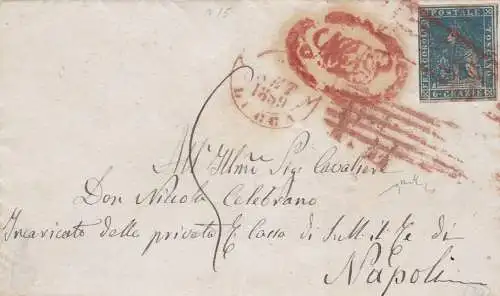 N 15
FRANCOBOLLO POSTALE TOSCANO
6 CRAZIE
SET
1859
LUCCA
P.D.
All' Illmo Sig. Cavaliere
Don Nicola Celebrano
Incaricato della privata R. Cassa di S. M. il Re di
Napoli